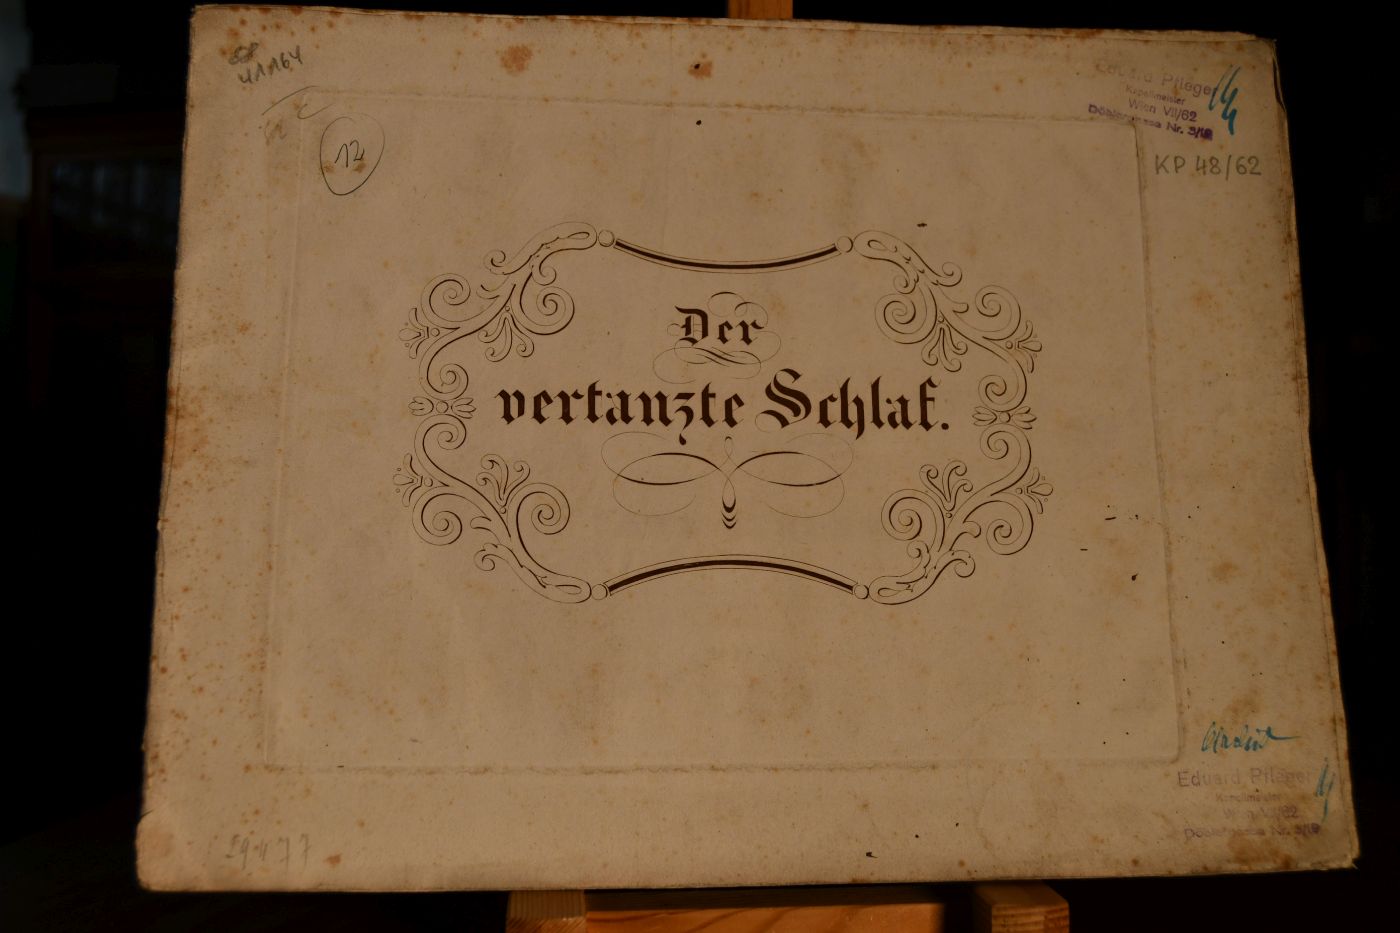 41164
Eduard Pfleger
Kapellmeister
Wien VII/62
Döblergasse Nr. 3/19
12
KP 48/62
Der
vertanzte Schlaf.
Eduard Pfleger
Kapellmeister
Wien VII/62
Döblergasse Nr. 3/19